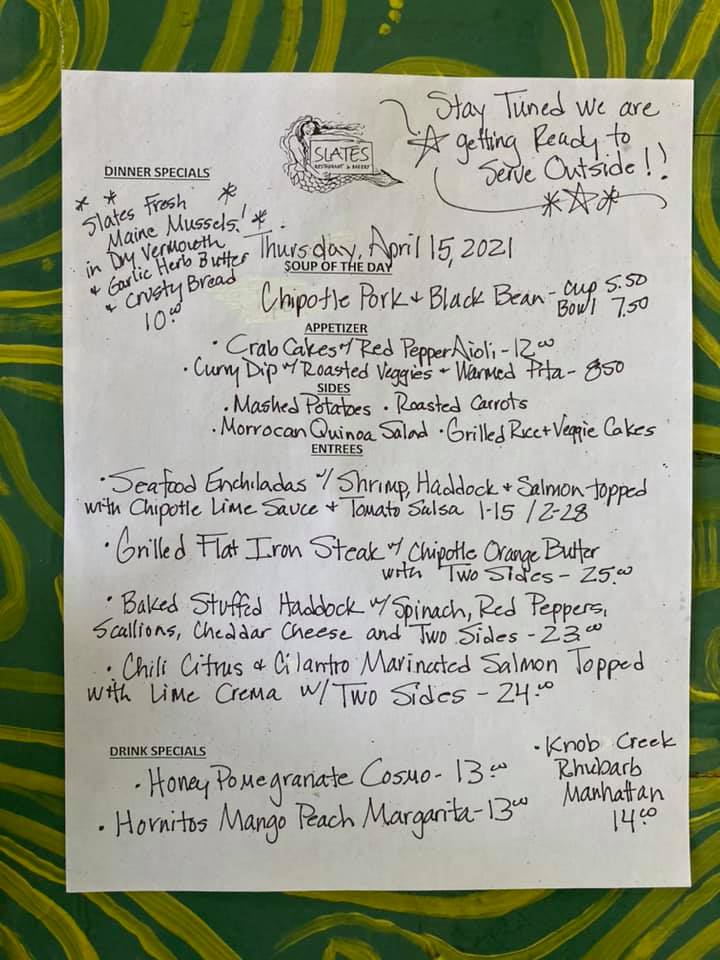 Stay Tuned we are
getting Ready to
Serve Outside!!
SLATES
RESTAURANT & BAKERY
DINNER SPECIALS
Slates Fresh
Maine Mussels!
in Dry Vermouth
+ Garlic Herb Butter
+ Crusty Bread
10.00
Thursday, April 15, 2021
SOUP OF THE DAY
Chipotle Pork + Black Bean - cup 5.50
Bowl 7.50
APPETIZER
• Crab Cakes w/ Red Pepper Aioli - 12.00
• Curry Dip w/ Roasted Veggies + Warmed Pita - 8.50
SIDES
• Mashed Potatoes • Roasted Carrots
• Morrocan Quinoa Salad • Grilled Rice + Veggie Cakes
ENTREES
• Seafood Enchiladas w/ Shrimp, Haddock + Salmon topped
with Chipotle Lime Sauce + Tomato Salsa 1-15 / 2-28
• Grilled Flat Iron Steak w/ Chipotle Orange Butter
with Two Sides - 25.00
• Baked Stuffed Haddock w/ Spinach, Red Peppers,
Scallions, Cheddar Cheese and Two Sides - 23.00
• Chili Citrus & Cilantro Marinated Salmon Topped
with Lime Crema w/ Two Sides - 24.00
DRINK SPECIALS
• Honey Pomegranate Cosmo - 13.00
• Hornitos Mango Peach Margarita - 13.00
• Knob Creek
Rhubarb
Manhattan
14.00